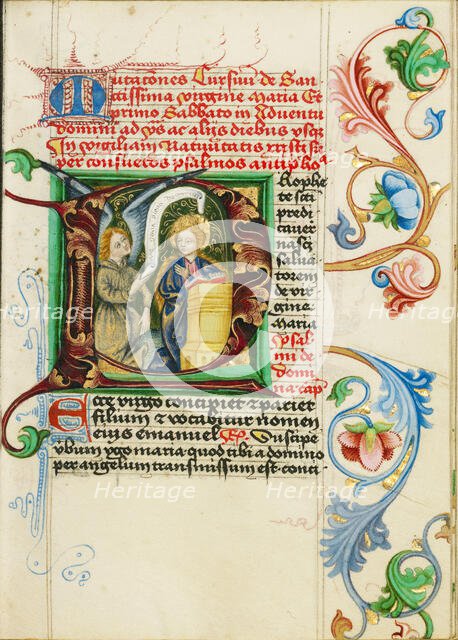 Mutationes Cursus de San
ctissima virgine Maria Et
primo Sabbato in Aduentu
domini ad vs ac alijs diebus vsqz
In vigiliam Natiuitatis
per consuetos psalmos antiphoa
Prophe
te sci
predi
cauer
nasci
salua
torem
de vir
gine
maria
psal
mi de
domi
na cap
Ecce virgo concipiet et pariet
filium et vocabitur nomen
eius Emanuel Suscipe
verbum virgo maria quod tibi a domino
per angelum transmissum est conci
Heritage
Images